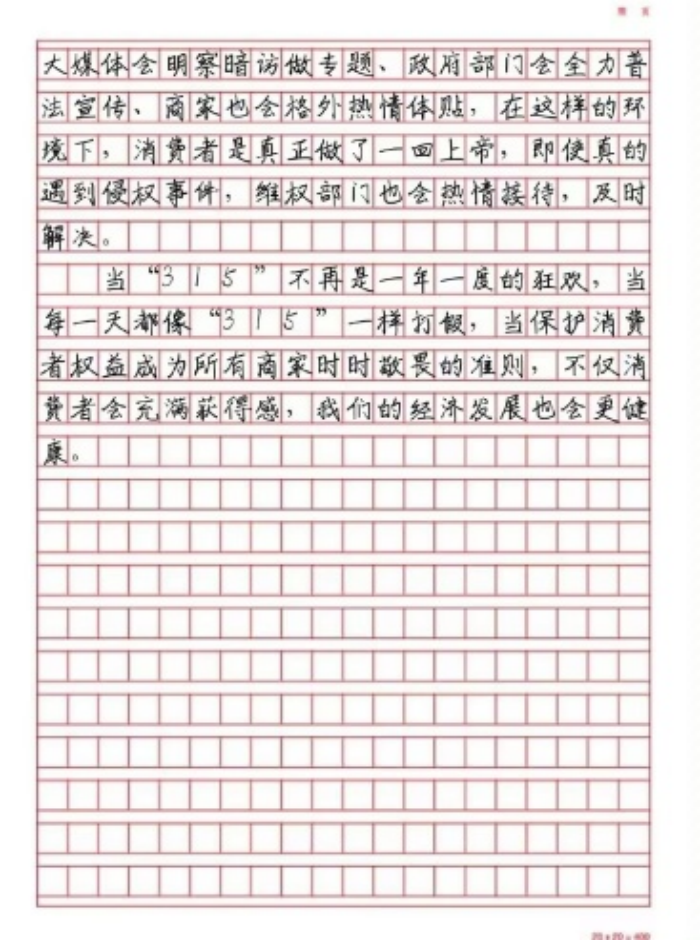 大媒体会明察暗访做专题、政府部门会全力普
法宣传、商家也会格外热情体贴，在这样的环
境下，消费者是真正做了一回上帝，即使真的
遇到侵权事件，维权部门也会热情接待，及时
解决。
当“315”不再是一年一度的狂欢，当
每一天都像“315”一样打假，当保护消费
者权益成为所有商家时时敬畏的准则，不仅消
费者会充满获得感，我们的经济发展也会更健
康。
20×20=400